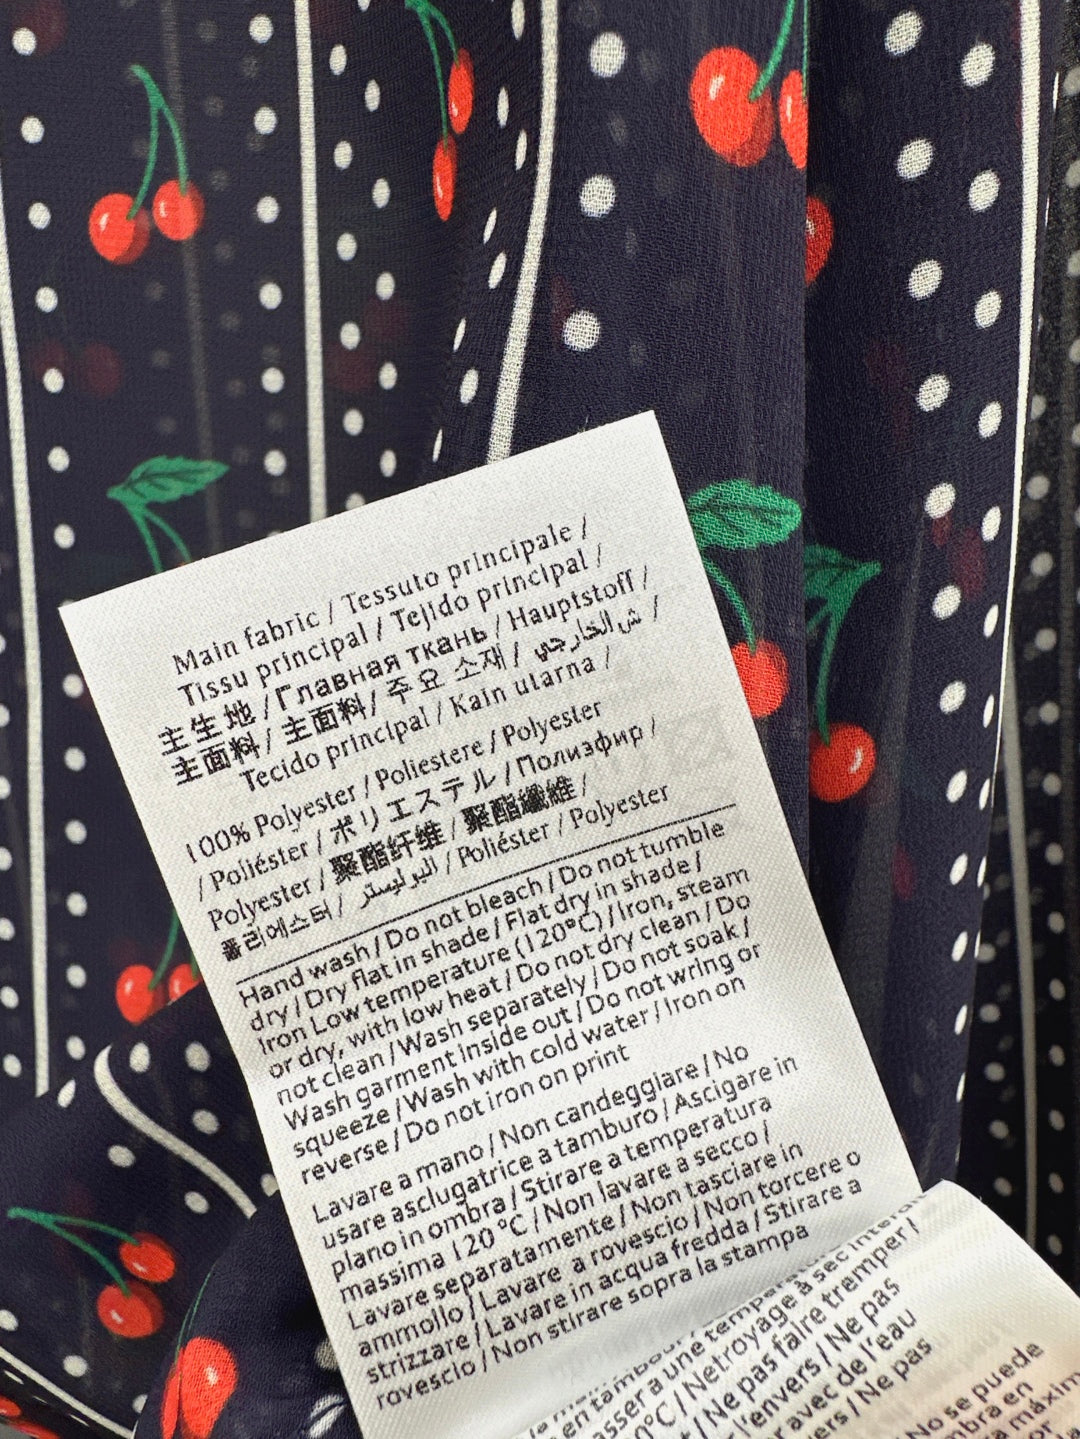 Main fabric / Tessuto principale /
Tissu principal / Tejido principal /
主生地 / Главная ткань / Hauptstoff /
主面料 / 主面料 / 주요 소재 / ش الخارجي /
Tecido principal / Kain utarna /
100% Polyester / Poliestere / Polyester
/ Poliéster / ポリエステル / Полиэфир /
Polyester / 聚酯纤维 / 聚酯纖維 /
폴리에스터 / البوليستر / Poliéster / Polyester
Hand wash / Do not bleach / Do not tumble
dry / Dry flat in shade / Flat dry in shade /
Iron Low temperature (120°C) / Iron, steam
or dry, with low heat / Do not dry clean / Do
not clean / Wash separately / Do not soak /
Wash garment inside out / Do not wring or
squeeze / Wash with cold water / Iron on
reverse / Do not iron on print
Lavare a mano / Non candeggiare / No
usare asciugatrice a tamburo / Ascigare in
plano in ombra / Stirare a temperatura
massima 120°C / Non lavare a secco /
Lavare separatamente / Non tasciare in
ammollo / Lavare a rovescio / Non torcere o
strizzare / Lavare in acqua fredda / Stirare a
rovescio / Non stirare sopra la stampa
en tambour
asser a une température
0°C / Netroyage à sec interd
/ Ne pas faire tremper /
l'envers / Ne pas
avec de l'eau
ers / Ne pas
No se puede
mbra en
a máxim